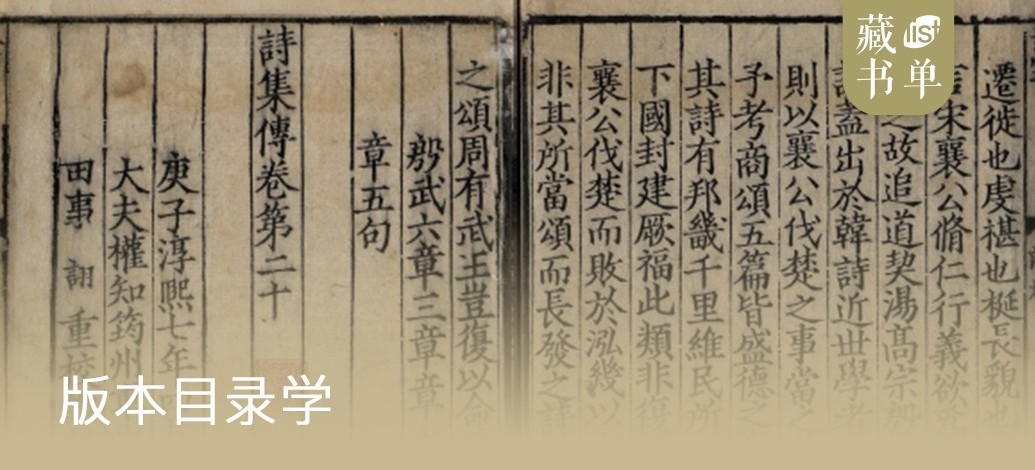 遷徙也虔椹也梴長貌也
言宋襄公脩仁行義欲
之故追道契湯高宗殷
說蓋出於韓詩近世學者
則以襄公伐楚之事當
予考商頌五篇皆盛德之
其詩有邦畿千里維民所
下國封建厥福此類非復
襄公伐楚而敗於泓幾以
非其所當頌而長發之詩
之頌周有武王豈復以命
殷武六章三章章
章五句
詩集傳卷第二十
庚子淳熙七年
大夫權知筠州
田事
詡 重校
藏书单
list
版本目录学